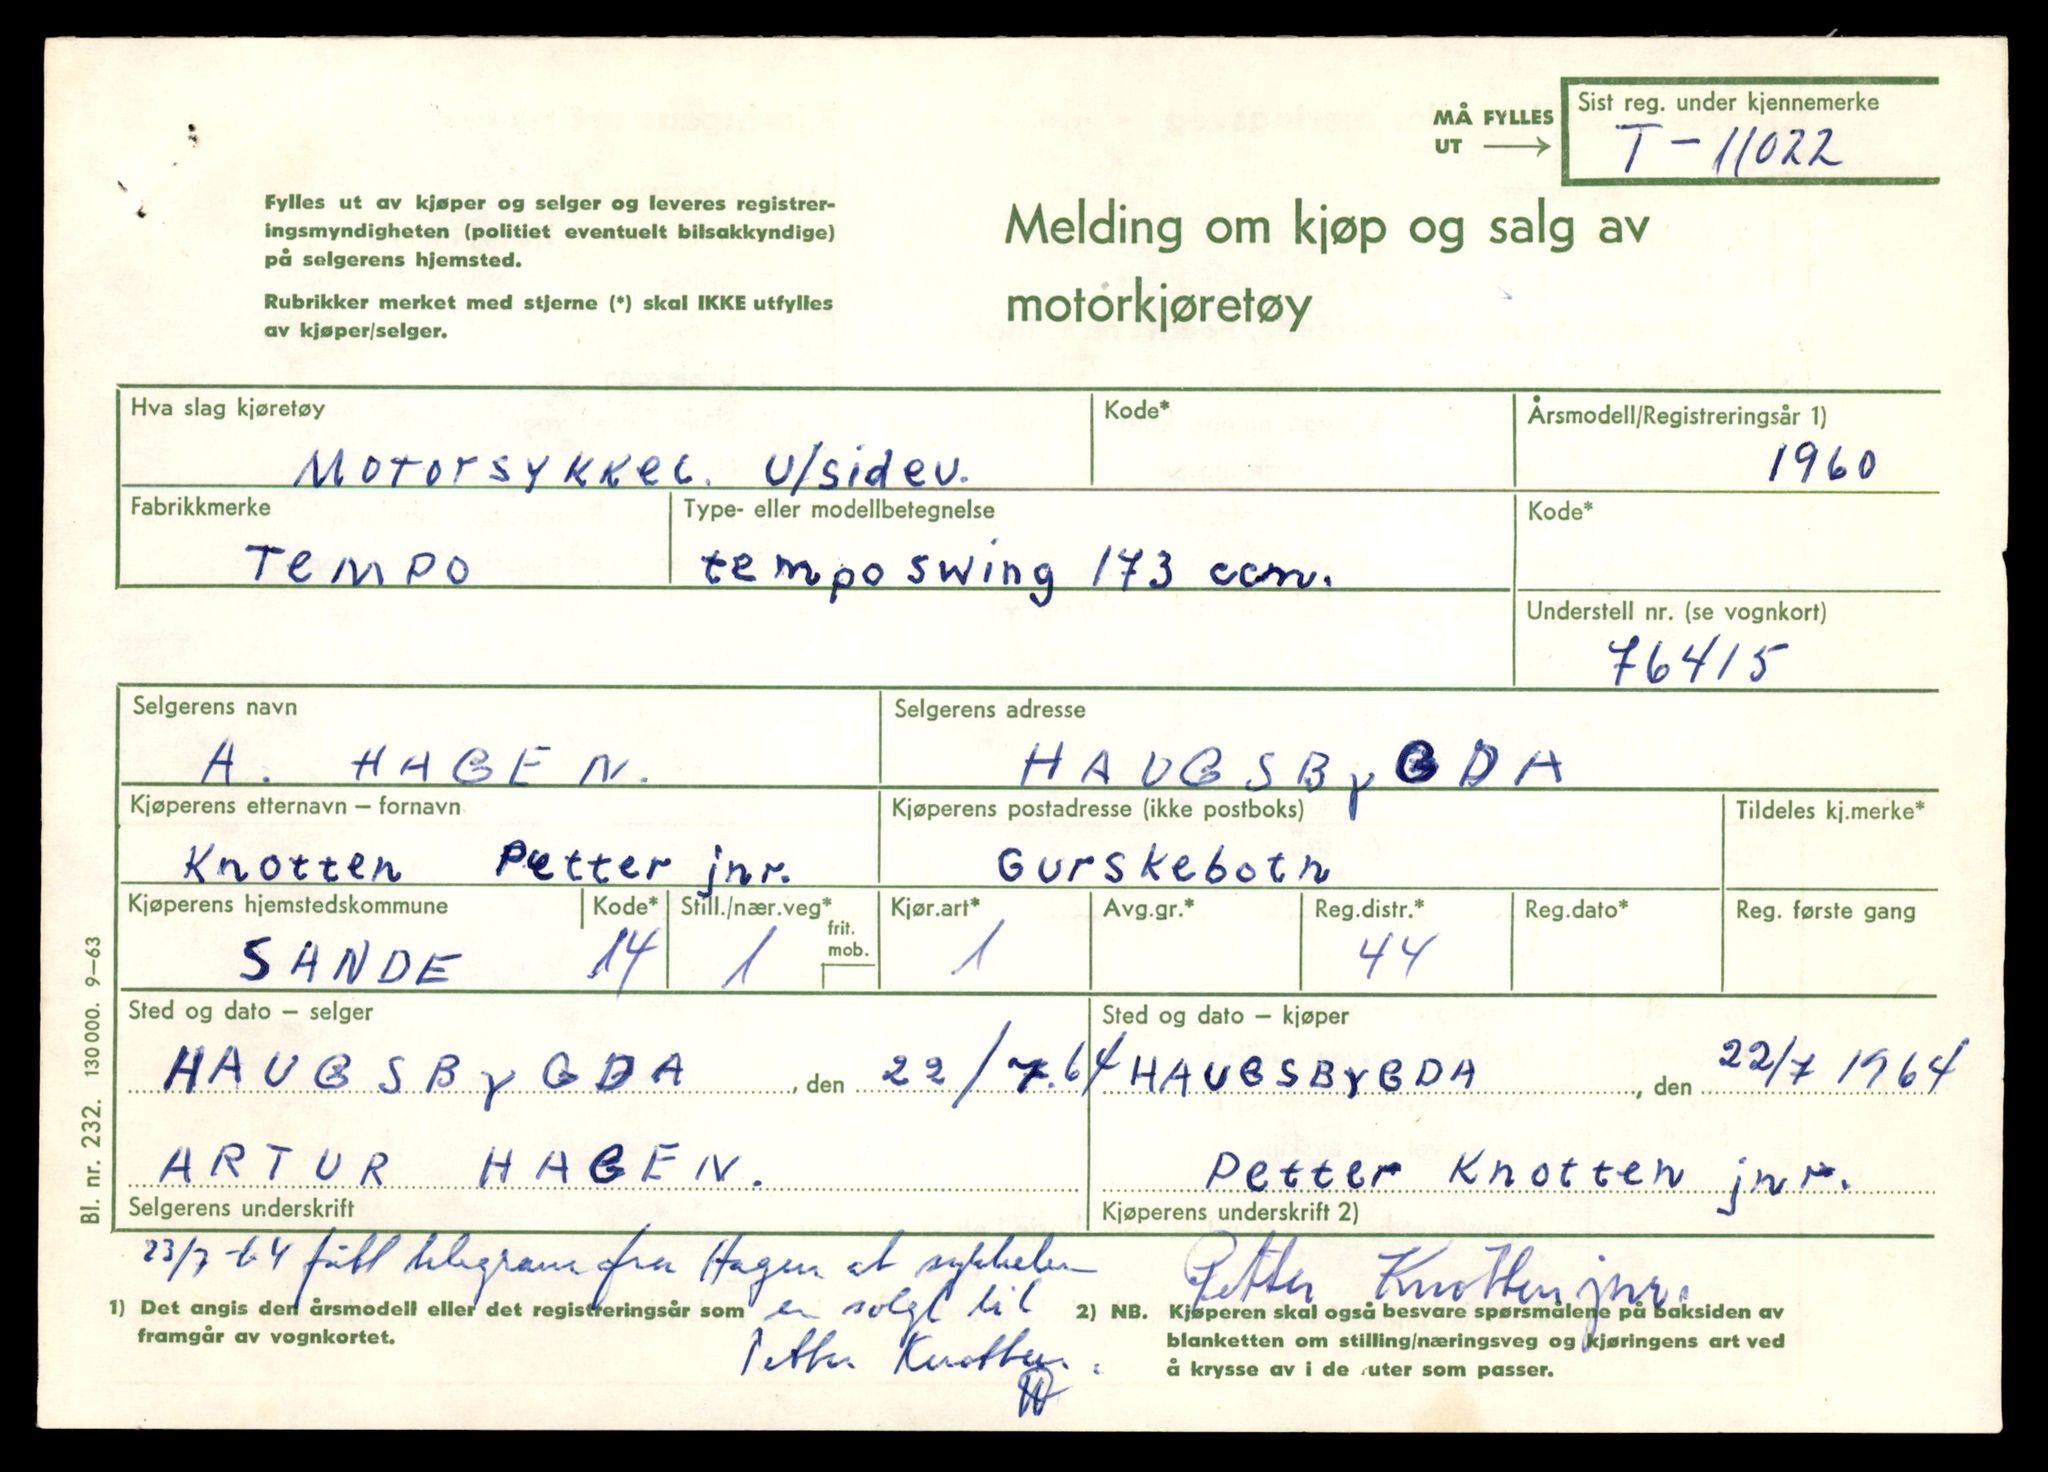 MÅ FYLLES
UT →
Sist reg. under kjennemerke
T-11022
Fylles ut av kjøper og selger og leveres registrer-
ingsmyndigheten (politiet eventuelt bilsakkyndige)
på selgerens hjemsted.
Rubrikker merket med stjerne (*) skal IKKE utfylles
av kjøper/selger.
Melding om kjøp og salg av
motorkjøretøy
Hva slag kjøretøy
Motorsykkel. u/sidev.
Kode*
Årsmodell/Registreringsår 1)
1960
Fabrikkmerke
Tempo
Type- eller modellbetegnelse
tempo swing 173 ccm.
Kode*
Understell nr. (se vognkort)
76415
Selgerens navn
A. HAGEN.
Selgerens adresse
HAUGSByGDA
Kjøperens etternavn – fornavn
Knotten Petter jnr.
Kjøperens postadresse (ikke postboks)
Gurskebotn
Tildeles kj.merke*
Kjøperens hjemstedskommune
SANDE
Kode*
14
Still./nær.veg*
1
frit.
mob.
Kjør.art*
1
Avg.gr.*
Reg.distr.*
44
Reg.dato*
Reg. første gang
Sted og dato – selger
HAUGSByGDA, den 22/7.64
Sted og dato – kjøper
HAUGSByGDA, den 22/7 1964
ARTUR HAGEN.
Selgerens underskrift
Petter Knotten jnr.
Kjøperens underskrift 2)
23/7-64 fått telegram fra Hagen at sykkelen
er solgt til
Petter Knotten.
Petter Knotten jnr.
1) Det angis den årsmodell eller det registreringsår som
framgår av vognkortet.
2) NB. Kjøperen skal også besvare spørsmålene på baksiden av
blanketten om stilling/næringsveg og kjøringens art ved
å krysse av i de ruter som passer.
Bl. nr. 232. 130 000. 9–63